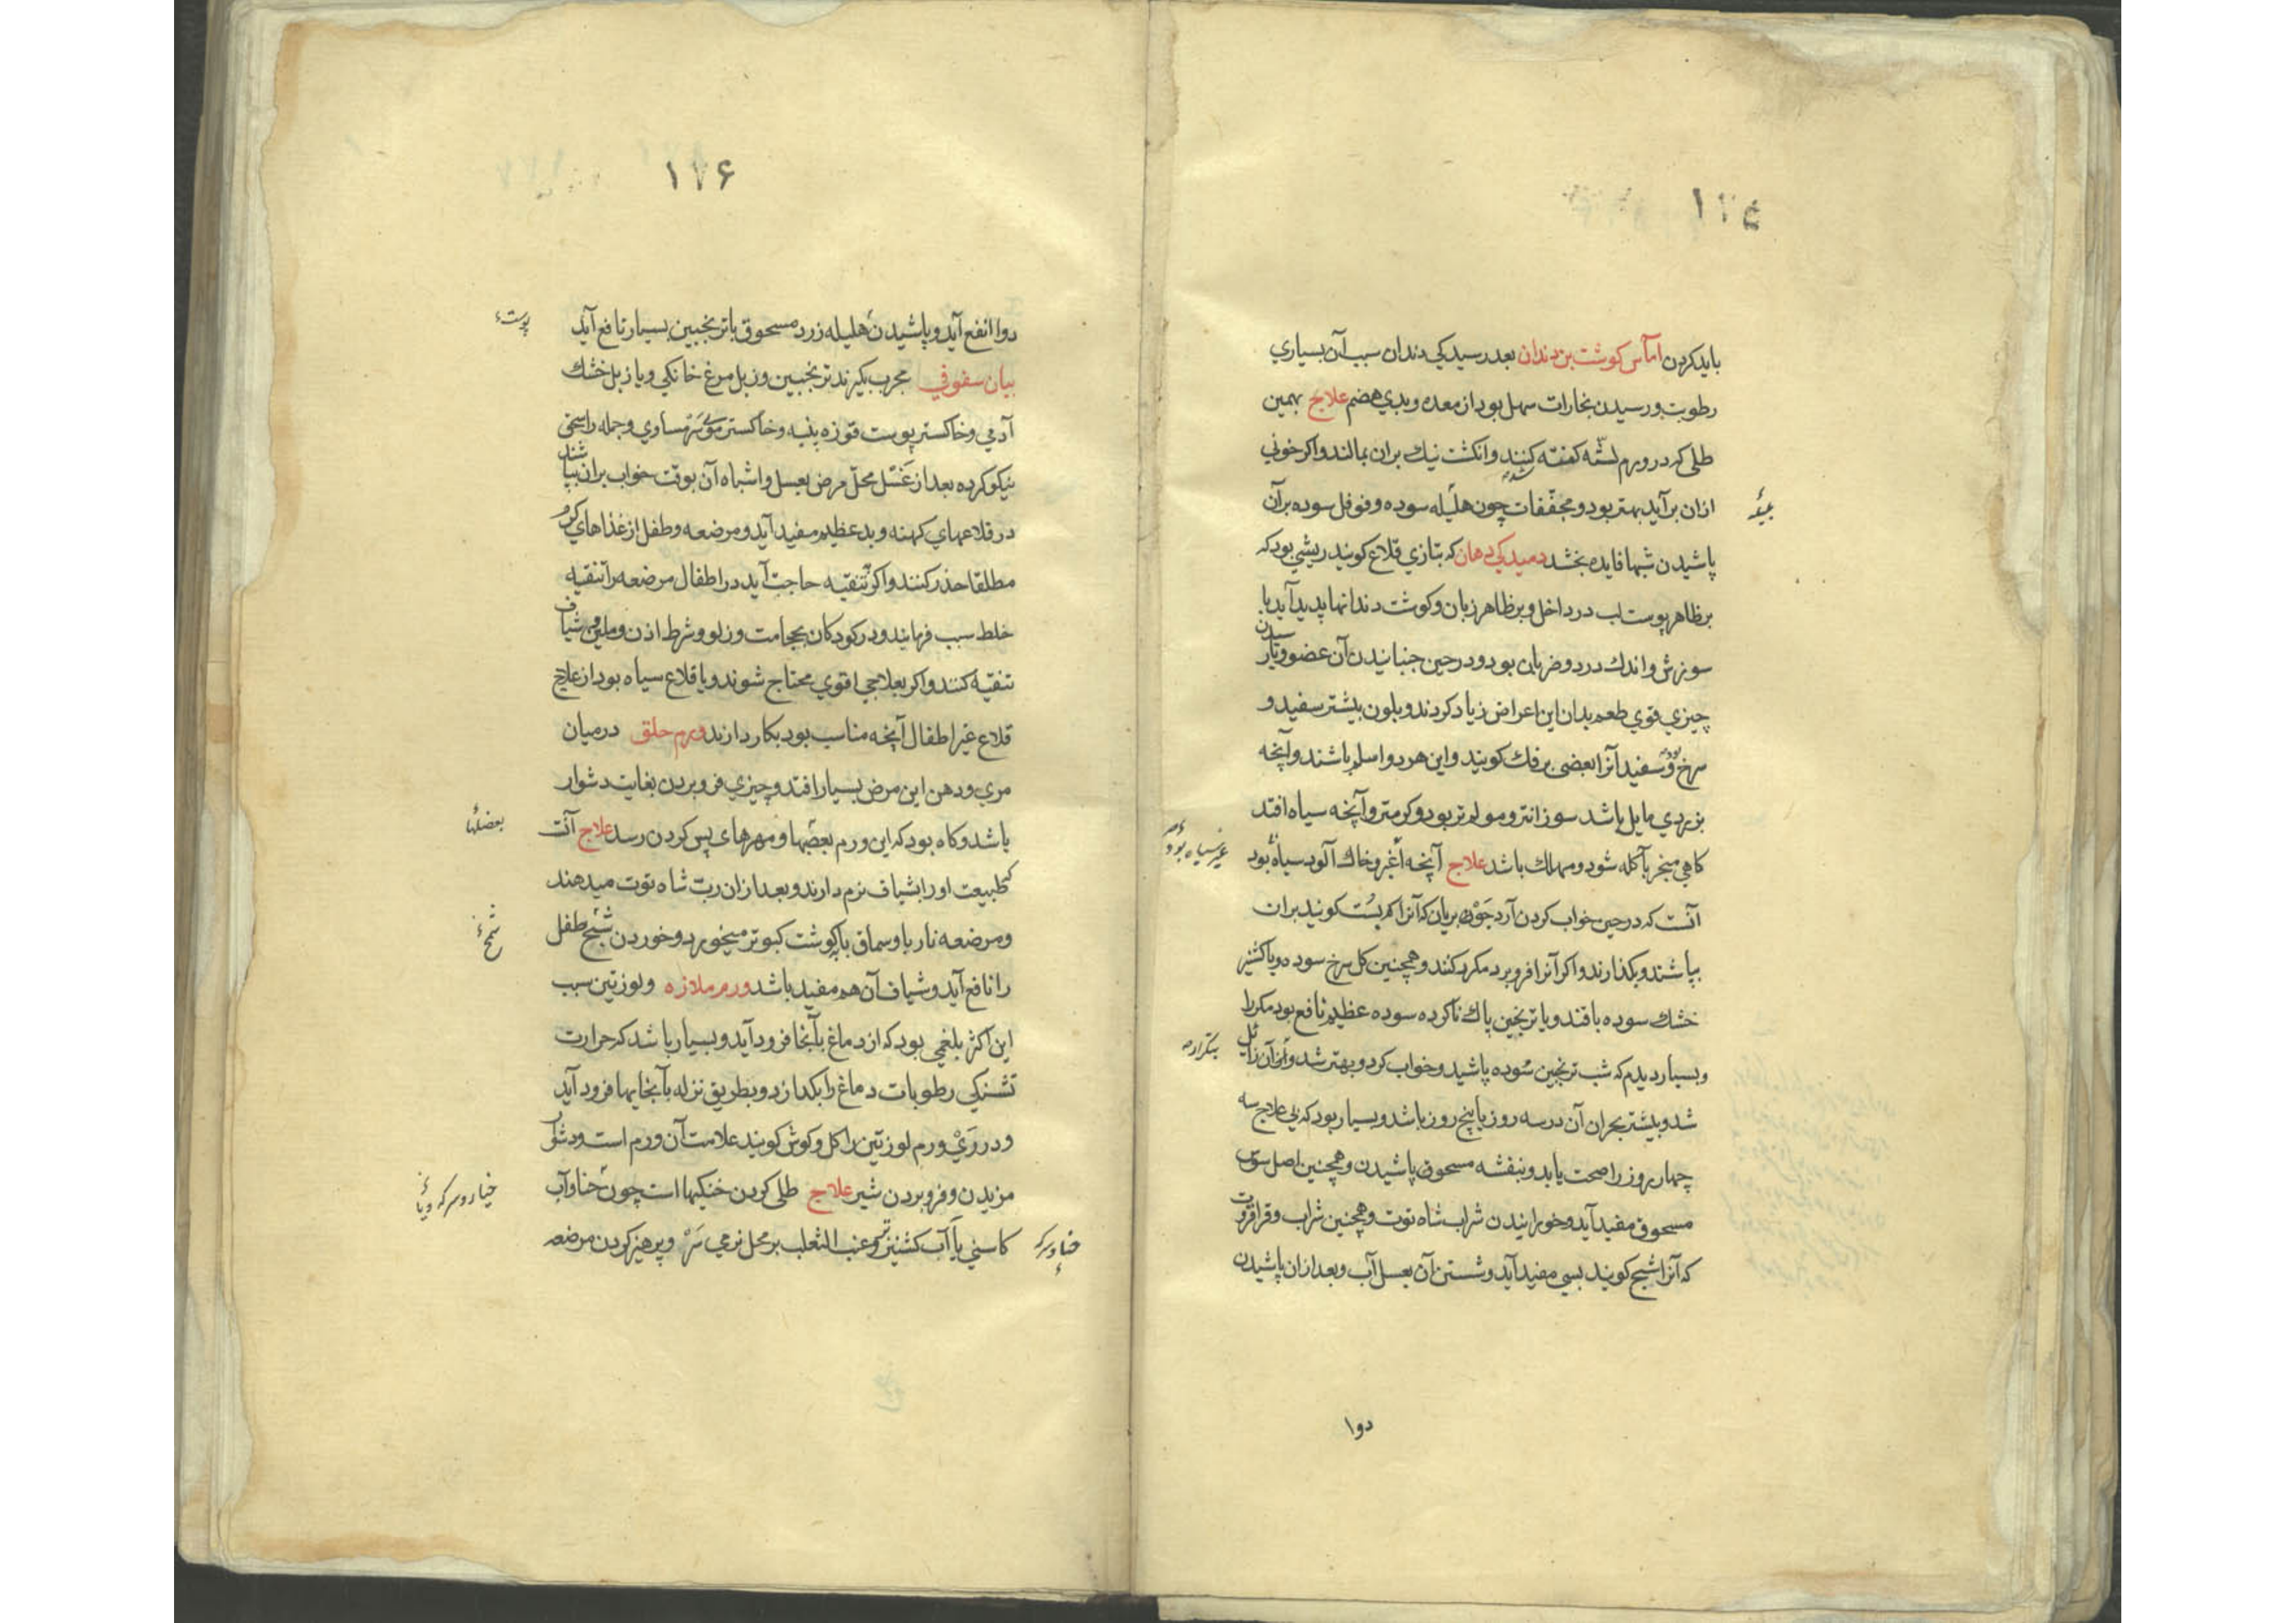 ۱۷۵
باید کردن اماس کوشت بن دندان بعد رسیدکی دندان سبب آن بسیاری
رطوبت و رسیدن بخارات سهل بود از معده و بدی هضم علاج بهمین
طلی که در ورم لثّه کفته کنند و انکشت نیك بران بمالند و اکر خونی
ازان برآید بهتر بود و مجفّفات چون هلیله سوده و فوفل سوده بر آن
پاشیدن شبها فایده بخشد دمیدکی دهان که بتازی قلاع کویند ریشی بود که
بر ظاهر پوست لب در داخل و بر ظاهر زبان و کوشت دندانها پدید آید با
سوزش و اندك درد و ضربان بود و در حین جنبانیدن آن عضو و
چیزی قوی طعم بدان این اعراض زیاد کردند و بلون بیشتر سفید و
سرخ بود و سفید آنرا بعضی برفك کویند و این هر دو اسلم باشند و آنچه
بزردی مایل باشد سوزانتر و مولم تر بود و کرمتر و آنچه سیاه افتد
کاهی منجر بآکله شود و مهلك باشد علاج آنچه اغبر و خاك آلود سیاه بود
غیر سیاه بود
آنست که در حین خواب کردن آرد جَوْ بریان که آنرا کم پِسُت کویند بران
بپاشند و بکذارند و اکر آنرا فرو برد مکرر کنند و همچنین کل سرخ سوده و یا کشنیز
خشك سوده با قند و یا ترنجبین پاك ناکرده سوده عظیم نافع بود مکررا
بتکرار
و بسیار دیدم که شب ترنجبین سُوده پاشید و خواب کرد و بهتر شد و از آن زایل
شد و بیشتر بحران آن در سه روز یا پنج روز باشد و بسیار بود که بی علاج سه
چهار روز را صحت یابد و بنفشه مسحوق پاشیدن و همچنین اصل سوس
مسحوق مفید آید و خورانیدن شراب شاه توت و همچنین شراب و قراقروت
که آنرا شیح کویند بسی مفید آید و شستن آن بعسل آب و بعد از ان پاشیدن
دوا
۱۷۶
دوا انفع آید و پاشیدن هلیله زرد مسحوق با ترنجبین بسیار نافع آید
پوست
بیان سفوفی مجرب بکیرند ترنجبین و زبل مرغ خانکی و یا زبل خشك
آدمی و خاکستر پوست قوزه پنبه و خاکستر موی سَرْ مساوی و جمله را سحق
نیکو کرده بعد از غَسْل محلّ مرض بعسل و اشباه آن بوقت خواب بران بپاشند
در قلاعهای کهنه و بد عظیم مفید آید و مرضعه و طفل از غذاهای کرم
مطلقا حذر کنند و اکر تنقیه حاجت آید در اطفال مرضعه را تنقیه
خلط سبب فرمایند و در کودکان بحجامت و زلو و شرط اذن و ملین و شیاف
تنقیه کنند و اکر بعلاجی اقوی محتاج شوند و یا قلاع سیاه بود از علاج
قلاع غیر اطفال آنچه مناسب بود بکار دارند ورم حلق در میان
مری و دهن این مرض بسیار افتد و چیزی فرو بردن بغایت دشوار
باشد و کاه بود که این ورم بعضبها و مهرهای پس کردن رسد علاج آنست
بعضلها
که طبیعت او را بشیاف نرم دارند و بعد ازان ربّ شاه توت میدهند
و مرضعه نارباو سماق با کوشت کبوتر میخورد و خوردن شیح طفل
را نافع آید و شیاف آن هم مفید باشد ورم ملازه و لوزتین سبب
این اکثر بلغمی بود که از دماغ بآنجا فرود آید و بسیار باشد که حرارت
تشنکی رطوبات دماغ را بکدازد و بطریق نزله بآنجایها فرود آید
و در رَیْ ورم لوزتین را کل و کوش کویند علامت آن ورم است و دشواری
مزیدن و فرو بردن شیر علاج طلی کردن خنکیها است چون حنا و آب
خیار و سرکه و یا
کاسنی یا آب کشنیز تر و عنب الثعلب بر محل نرمی سَرْ و پرهیز کردن مرضعه
حنا و سرکه